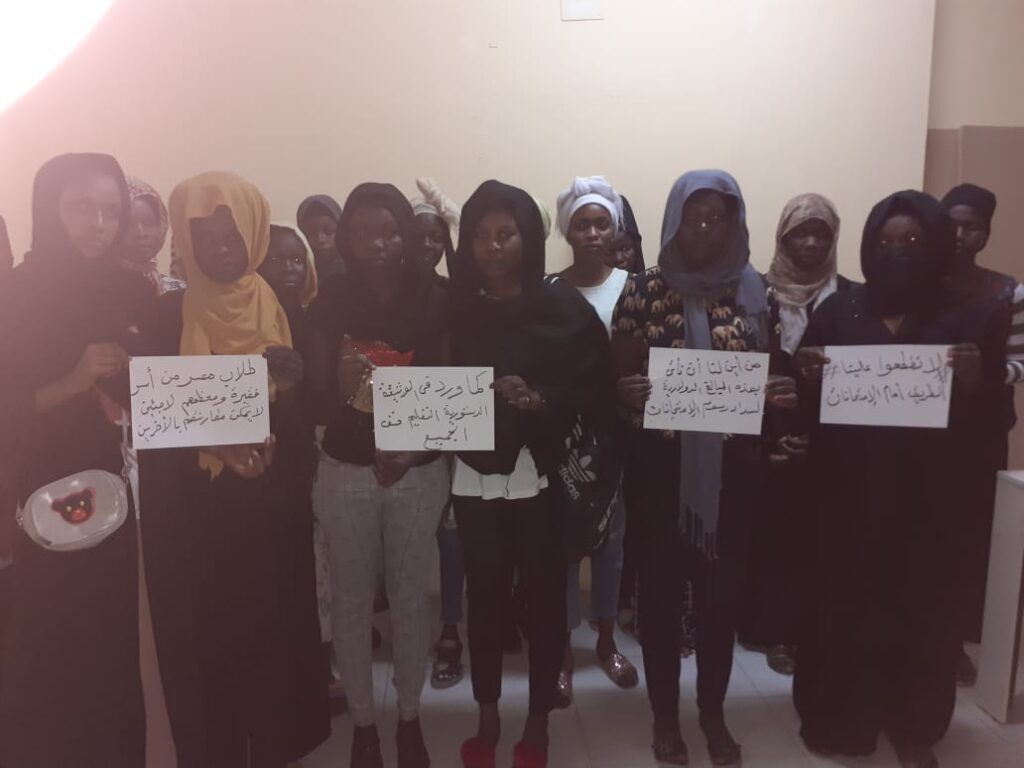 طلاب مصر من أسر
فقيرة ومعظمهم لاجئين
لا يمكن مقارنتهم بالآخرين
كما ورد في الوثيقة
الدستورية التعليم حق
الجميع
من أين لنا أن نأتي
بهذه المبالغ الدولارية
لسداد رسوم الامتحانات
لا تقطعوا علينا
الطريق أمام الامتحانات
adidas